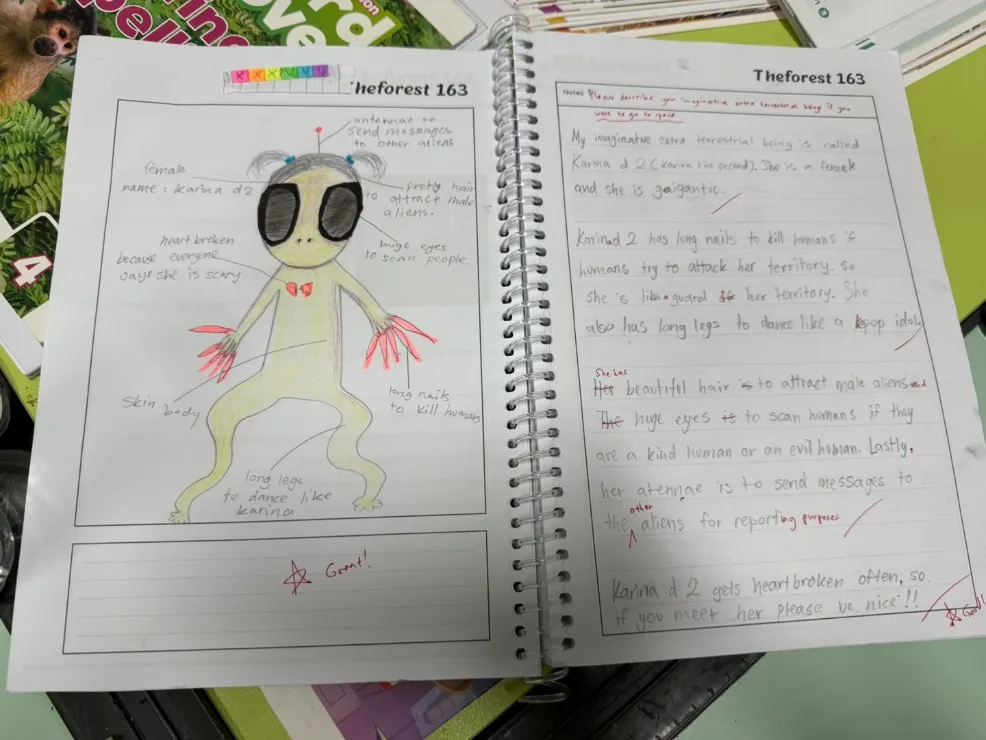 Theforest 163
antennae to
send messages
to other aliens
female
name: karina d2
pretty hair
to attract male
aliens.
heart broken
because everyone
says she is scary
huge eyes
to scan people.
skin body
long nails
to kill humans
long legs
to dance like
karina
Great!
4
Theforest 163
Notes Please describe your imaginative extra terrestrial being if you
were to go to space
My imaginative extra terrestrial being is called
Karina d 2 (karina the second). She is a female
and she is gaigantic.
Karinad 2 has long nails to kill humans if
humans try to attack her territory. So
she is like a guard for her territory. She
also has long legs to dance like a kpop idol.
She has
Her beautiful hair is to attract male aliens and
The huge eyes is to scan humans if they
are a kind human or an evil human. Lastly,
her atennae is to send messages to
other
the aliens for reporting purposes
Karina d 2 gets heartbroken often, so
if you meet her please be nice!!
Good!